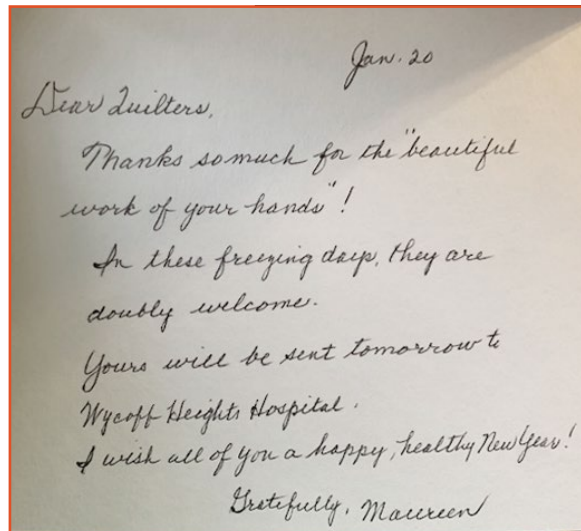 Jan. 20
Dear Quilters,
Thanks so much for the "beautiful
work of your hands"!
In these freezing days, they are
doubly welcome.
Yours will be sent tomorrow to
Wycoff Heights Hospital.
I wish all of you a happy, healthy New Year!
Gratefully, Maureen